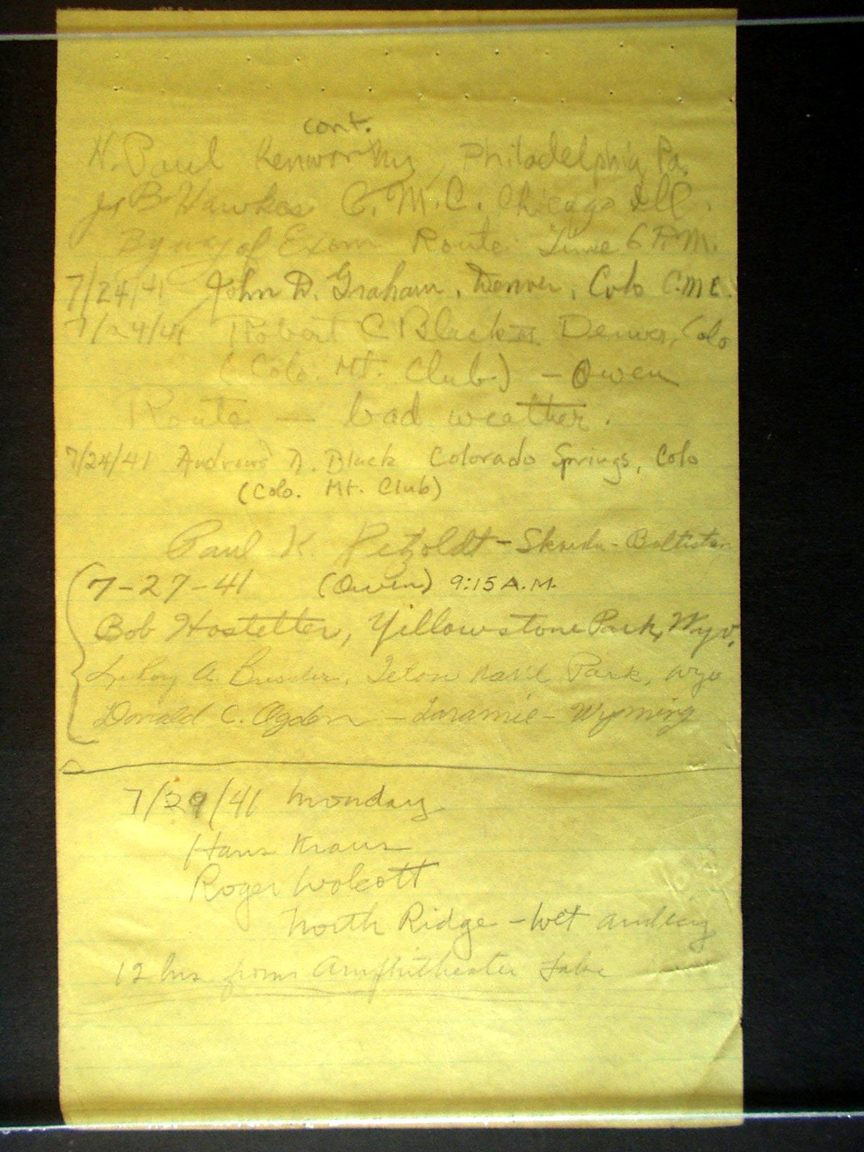 cont.
N. Paul Kenworthy Philadelphia, Pa.
B Hawkes C.M.C. Chicago Ill.
By way of Exum Route. Time 6 P.M.
7/24/41 John D. Graham, Denver, Colo C.M.C.
7/24/41 Robert C Black Denver, Colo
(Colo Mt. Club) - Owen
Route — bad weather.
7/24/41 Andrews D. Black Colorado Springs, Colo
(Colo. Mt. Club)
Paul K. Petzoldt - Skardu - Baltistan
7-27-41 (Owen) 9:15 A.M.
Bob Hostetter, Yellowstone Park, Wyo.
LeRoy A. Teton Nat'l Park, Wyo
Donald C. Ogden - Laramie - Wyoming
7/29/41 Monday
Hans Kraus
Roger Wolcott
North Ridge - wet and icy
12 hrs from Amphitheater Lake